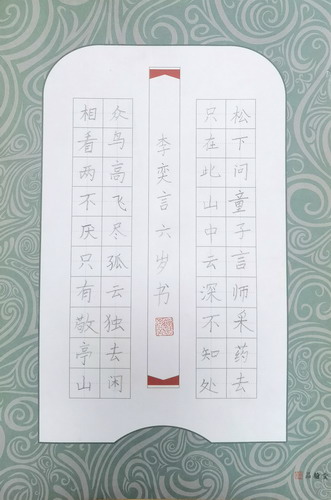 松下问童子言师采药去
只在此山中云深不知处
李奕言六岁书
众鸟高飞尽孤云独去闲
相看两不厌只有敬亭山